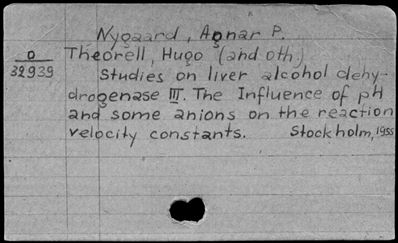 Nygaard, Agnar P.
O Theorell, Hugo (and oth.)
32939 Studies on liver alcohol dehy-
drogenase III. The Influence of pH
and some anions on the reaction
velocity constants. Stockholm, 1955